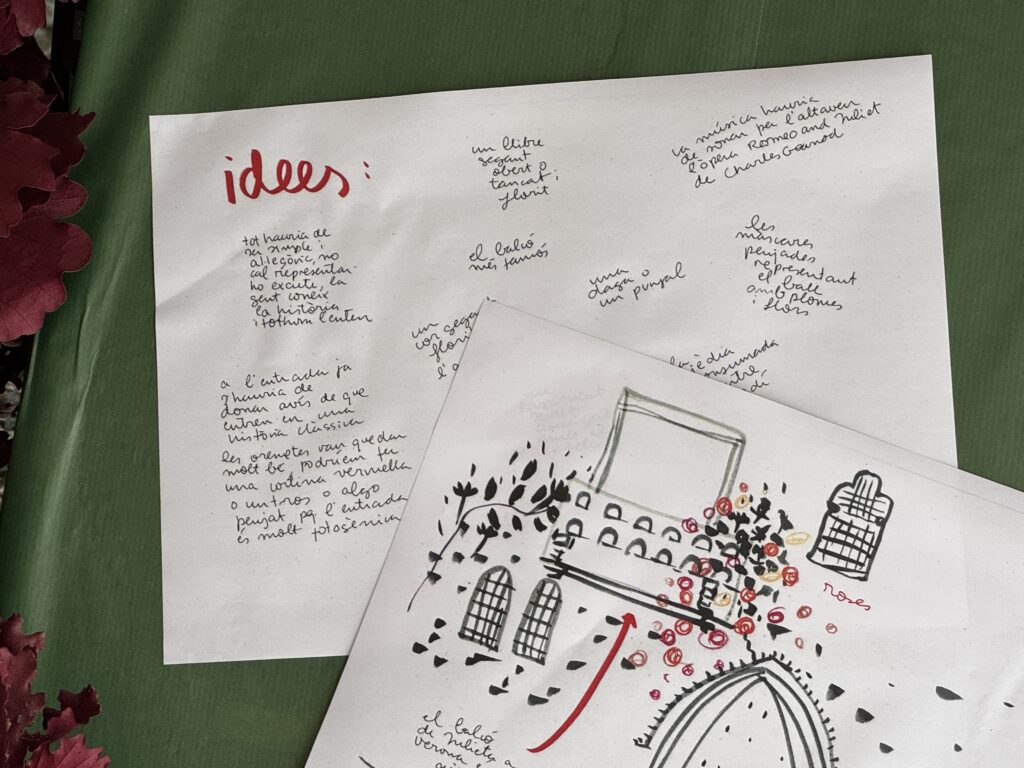 idees:
un llibre
gegant
obert o
tancat i
florit
la música hauria
de sonar per l'altaveu
l'òpera Romeo and Juliet
de Charles Gounod
tot hauria de
ser simple i
al·legòric, no
cal representar-
ho excute, la
gent coneix
la història
i tothom l'entén
el balcó
més famós
una
daga o
un punyal
les
màscares
penjades
representant
el ball
amb plomes
i flors
un
cor
florit
l'
a l'entrada ja
s'hauria de
donar avís de que
entren en una
història clàssica
les orenetes van quedar
molt bé, podríem fer
una cortina vermella
o un tros o algo
penjat pq l'entrada
és molt fotogènica
roses
el balcó
de Julieta a
verona